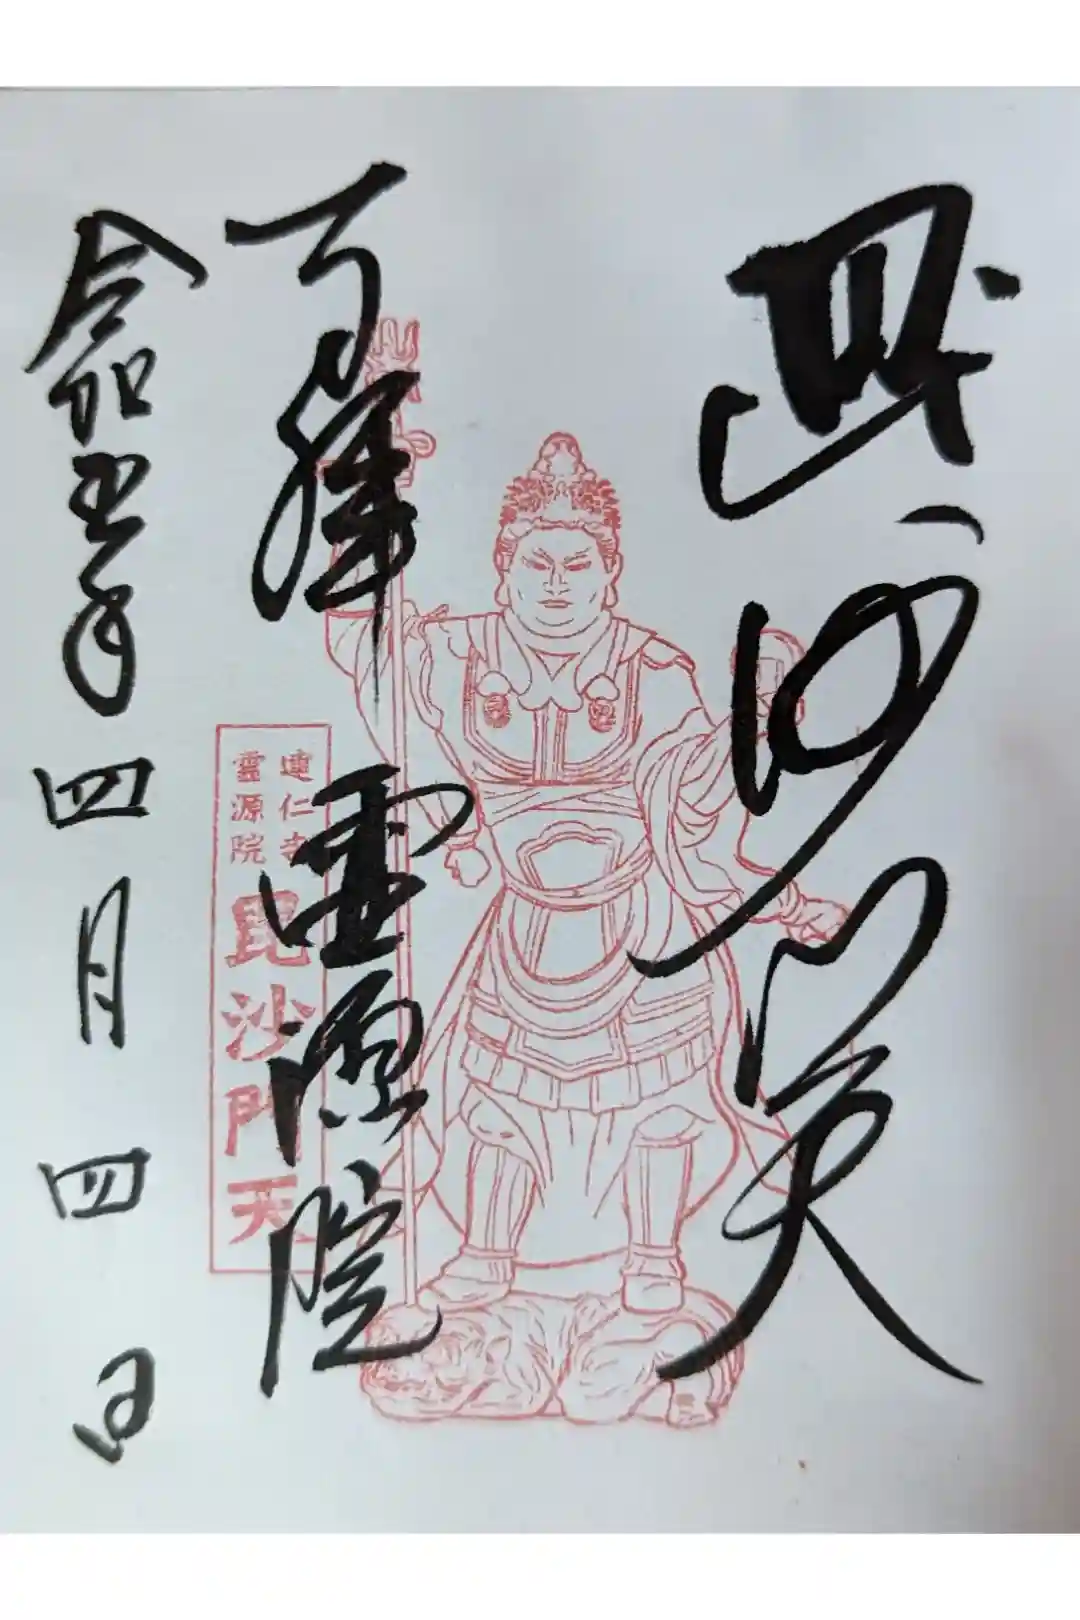 毘沙門天
霊源院
令和五年四月四日
建仁寺
靈源院
毘沙門天